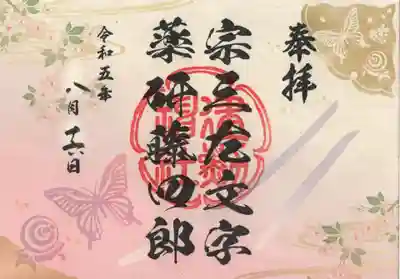 奉拝
宗三左文字
薬研藤四郎
令和五年
八月十六日